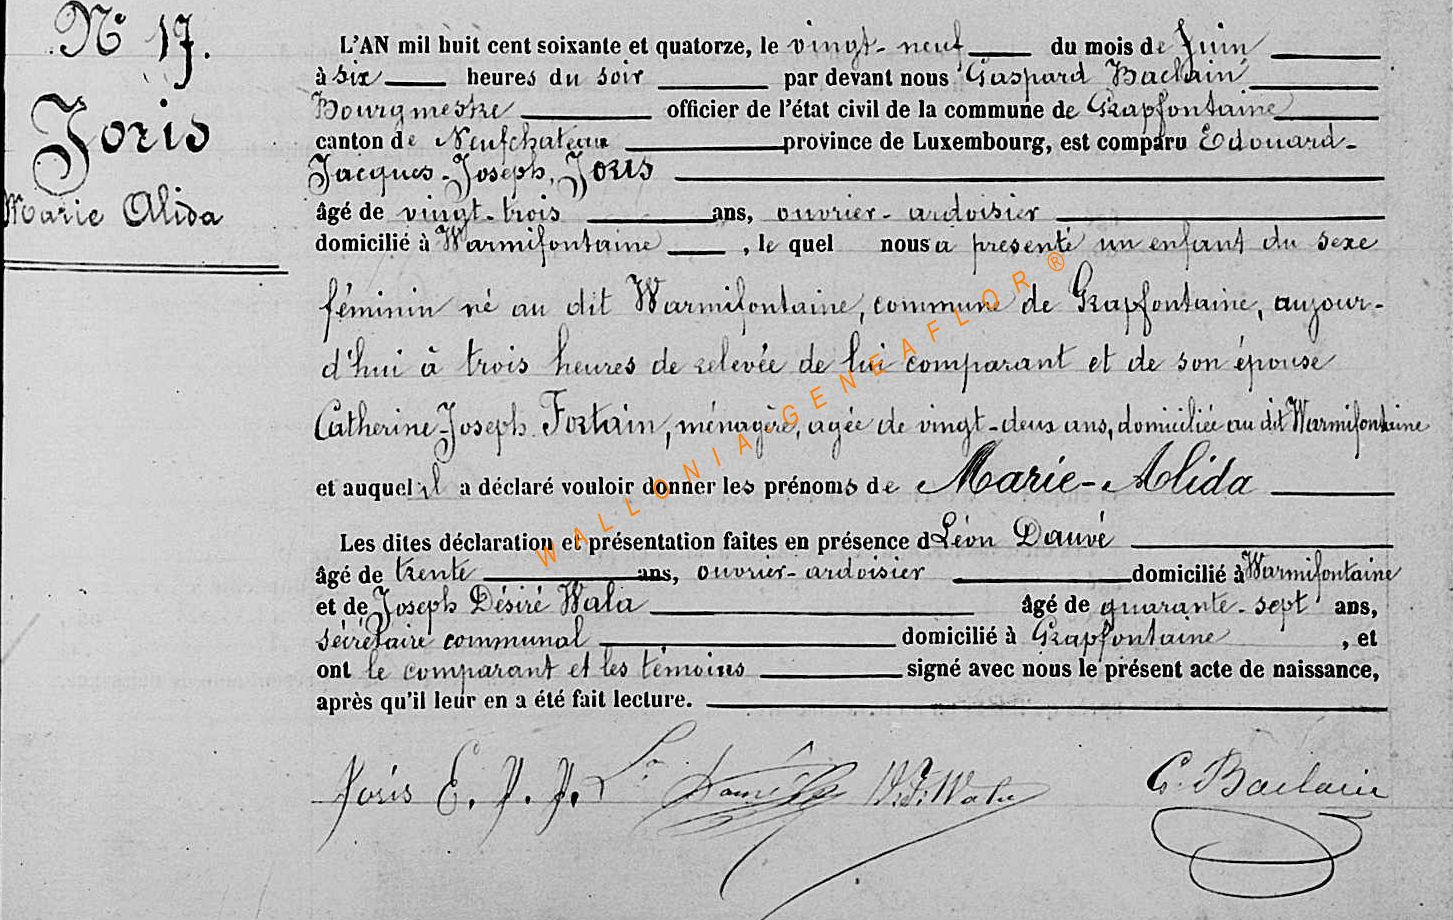 N° 17.
Joris
Marie Alida
L'AN mil huit cent soixante et quatorze, le vingt-neuf du mois de Juin
à six heures du soir par devant nous Gaspard Baclain
Bourgmestre officier de l'état civil de la commune de Grapfontaine
canton de Neufchateau province de Luxembourg, est comparu Edouard-
Jacques-Joseph, Joris
âgé de vingt-trois ans, ouvrier-ardoisier
domicilié à Warmifontaine, le quel nous a présenté un enfant du sexe
féminin né au dit Warmifontaine, commune de Grapfontaine, aujour-
d'hui à trois heures de relevée de lui comparant et de son épouse
Catherine-Joseph Fortain, ménagère, agée de vingt-deux ans, domiciliée au dit Warmifontaine
et auquel il a déclaré vouloir donner les prénoms de Marie-Alida
Les dites déclaration et présentation faites en présence d Léon Dauvé
âgé de trente ans, ouvrier-ardoisier domicilié à Warmifontaine
et de Joseph Désiré Wala âgé de quarante-sept ans,
sécrétaire communal domicilié à Grapfontaine, et
ont le comparant et les témoins signé avec nous le présent acte de naissance,
après qu'il leur en a été fait lecture.
Joris E. J. J. G. Baclain
WALLONIA-GENEAFLOR ®